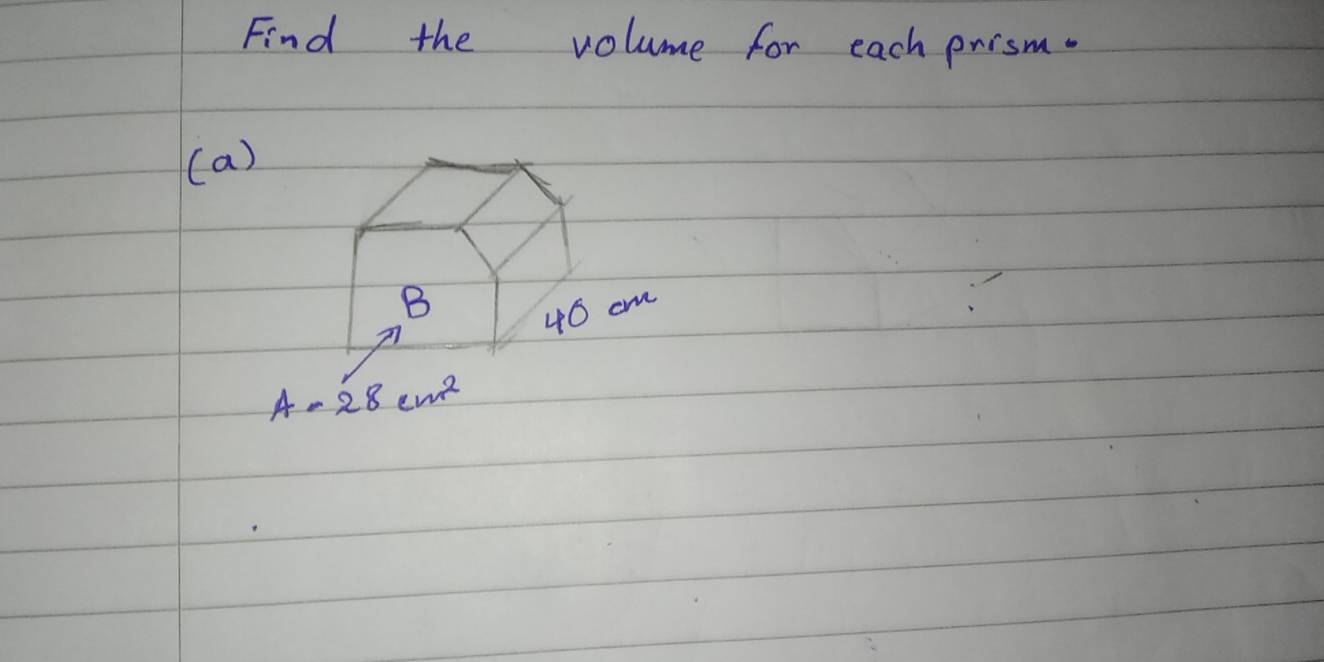 Find the volume for each prism.
(a)
B
40 cm
A = 28 cm²